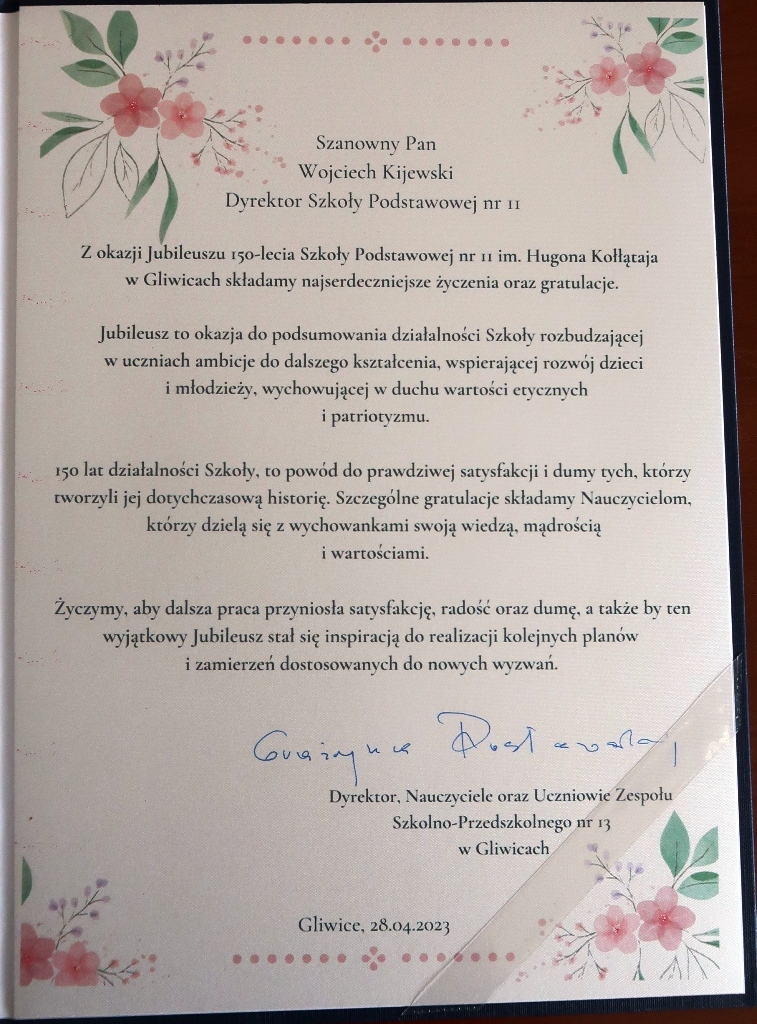 Szanowny Pan
Wojciech Kijewski
Dyrektor Szkoły Podstawowej nr 11
Z okazji Jubileuszu 150-lecia Szkoły Podstawowej nr 11 im. Hugona Kołłątaja
w Gliwicach składamy najserdeczniejsze życzenia oraz gratulacje.
Jubileusz to okazja do podsumowania działalności Szkoły rozbudzającej
w uczniach ambicje do dalszego kształcenia, wspierającej rozwój dzieci
i młodzieży, wychowującej w duchu wartości etycznych
i patriotyzmu.
150 lat działalności Szkoły, to powód do prawdziwej satysfakcji i dumy tych, którzy
tworzyli jej dotychczasową historię. Szczególne gratulacje składamy Nauczycielom,
którzy dzielą się z wychowankami swoją wiedzą, mądrością
i wartościami.
Życzymy, aby dalsza praca przyniosła satysfakcję, radość oraz dumę, a także by ten
wyjątkowy Jubileusz stał się inspiracją do realizacji kolejnych planów
i zamierzeń dostosowanych do nowych wyzwań.
Grażyna
Dyrektor, Nauczyciele oraz Uczniowie Zespołu
Szkolno-Przedszkolnego nr 13
w Gliwicach
Gliwice, 28.04.2023